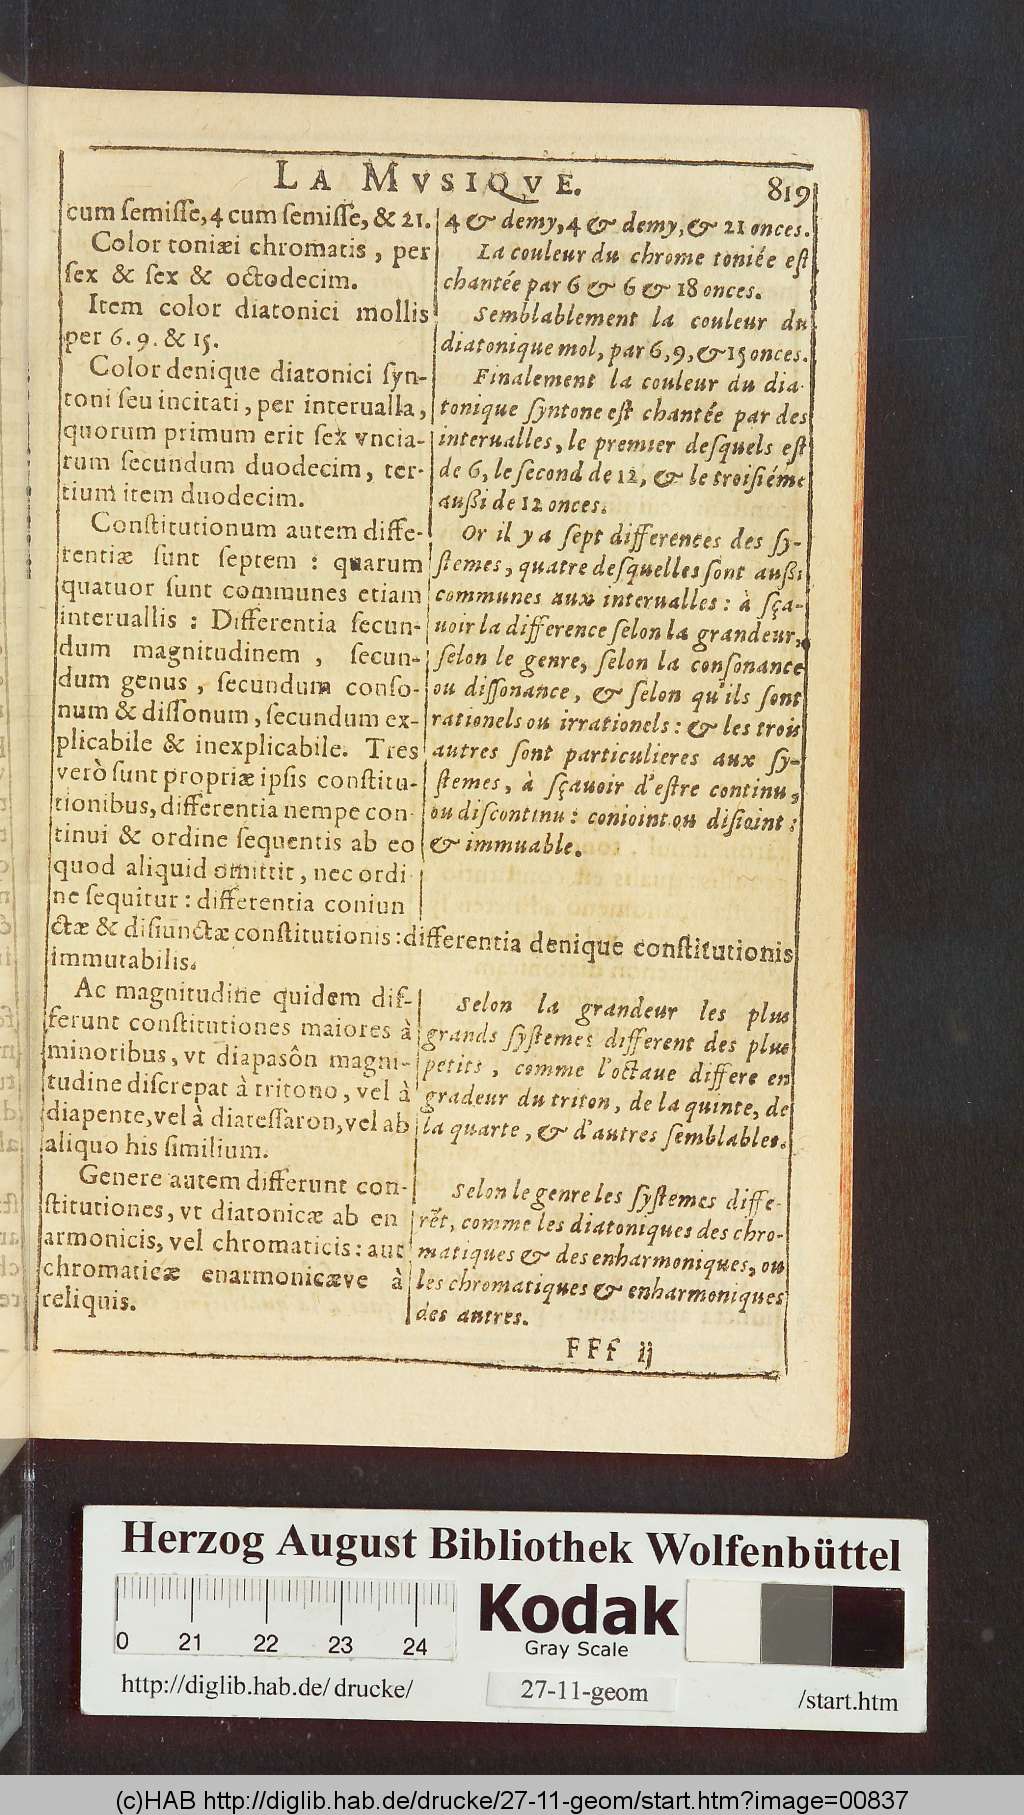 LA MVSIQVE.
819
cum semisse, 4 cum semisse, & 21.
Color toniæi chromatis, per
sex & sex & octodecim.
Item color diatonici mollis
per 6. 9. & 15.
Color denique diatonici syn-
toni seu incitati, per interualla,
quorum primum erit sex vncia-
rum secundum duodecim, ter-
tium item duodecim.
Constitutionum autem diffe-
rentiæ sunt septem : quarum
quatuor sunt communes etiam
interuallis : Differentia secun-
dum magnitudinem, secun-
dum genus, secundum conso-
num & dissonum, secundum ex-
plicabile & inexplicabile. Tres
verò sunt propriæ ipsis constitu-
tionibus, differentia nempe con-
tinui & ordine sequentis ab eo
quod aliquid omittit, nec ordi
ne sequitur : differentia coniun
ctæ & disiunctæ constitutionis : differentia denique constitutionis
immutabilis.
4 & demy, 4 & demy, & 21 onces.
La couleur du chrome toniée est
chantée par 6 & 6 & 18 onces.
Semblablement la couleur du
diatonique mol, par 6, 9, & 15 onces.
Finalement la couleur du dia-
tonique syntone est chantée par des
interualles, le premier desquels est
de 6, le second de 12, & le troisiéme
aussi de 12 onces.
Or il y a sept differences des sy-
stemes, quatre desquelles sont aussi
communes aux interualles : à sça-
uoir la difference selon la grandeur,
selon le genre, selon la consonance
ou dissonance, & selon qu'ils sont
rationels ou irrationels : & les trois
autres sont particulieres aux sy-
stemes, à sçauoir d'estre continu,
ou discontinu : conioint ou disioint :
& immuable.
Ac magnitudine quidem dif-
ferunt constitutiones maiores à
minoribus, vt diapasôn magni-
tudine discrepat à tritono, vel à
diapente, vel à diatessaron, vel ab
aliquo his similium.
Genere autem differunt con-
stitutiones, vt diatonicæ ab en
armonicis, vel chromaticis : aut
chromaticæ enarmonicæve à
reliquis.
Selon la grandeur les plus
grands systemes different des plus
petits, comme l'octaue differe en
gradeur du triton, de la quinte, de
la quarte, & d'autres semblables.
Selon le genre les systemes diffe-
rẽt, comme les diatoniques des chro-
matiques & des enharmoniques, ou
les chromatiques & enharmoniques
des autres.
FFf ij
Herzog August Bibliothek Wolfenbüttel
0 21 22 23 24
Kodak
Gray Scale
http://diglib.hab.de/drucke/
27-11-geom
/start.htm
(c)HAB http://diglib.hab.de/drucke/27-11-geom/start.htm?image=00837